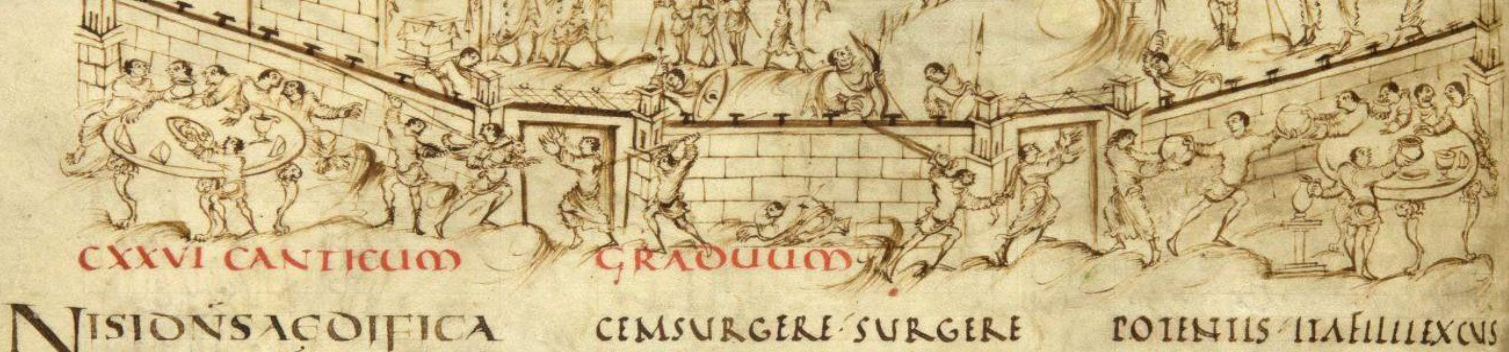 CXXVI CANTICUM GRADUUM
NISIDN̄SAEDIFICA
CEMSURGERE·SURGERE
POTENTIS·ITAFILIIEXCUS